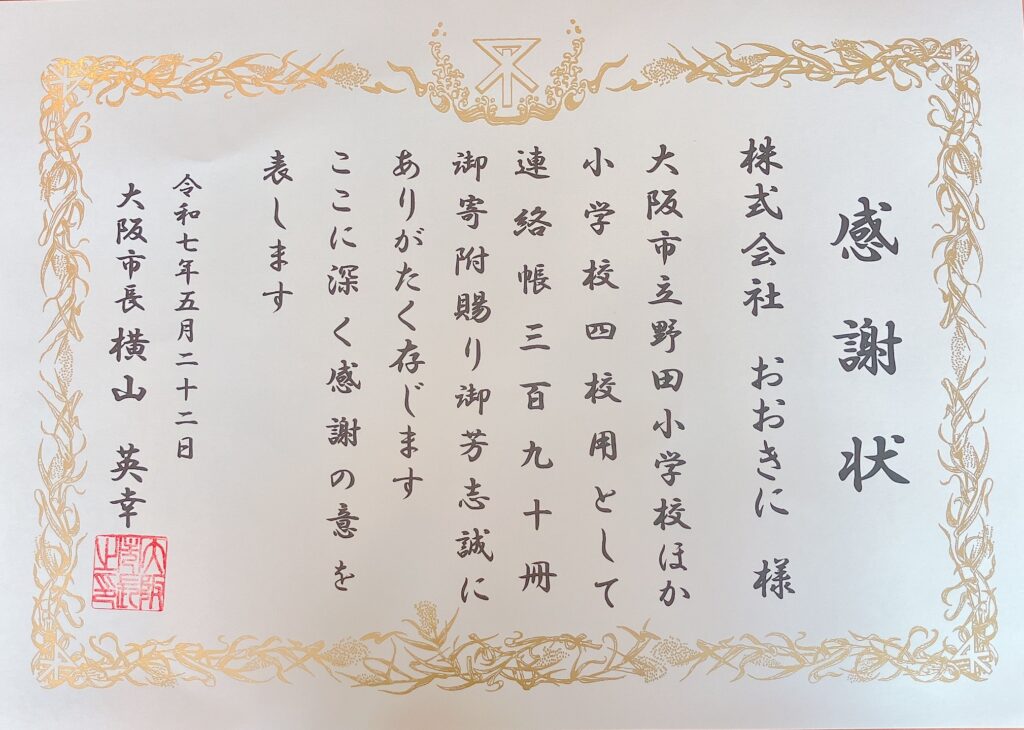 感謝状
株式会社 おおきに 様
大阪市立野田小学校ほか
小学校四校用として
連絡帳三百九十冊
御寄附賜り御芳志誠に
ありがたく存じます
ここに深く感謝の意を
表します
令和七年五月二十二日
大阪市長 横山 英幸
大阪
市長
之印